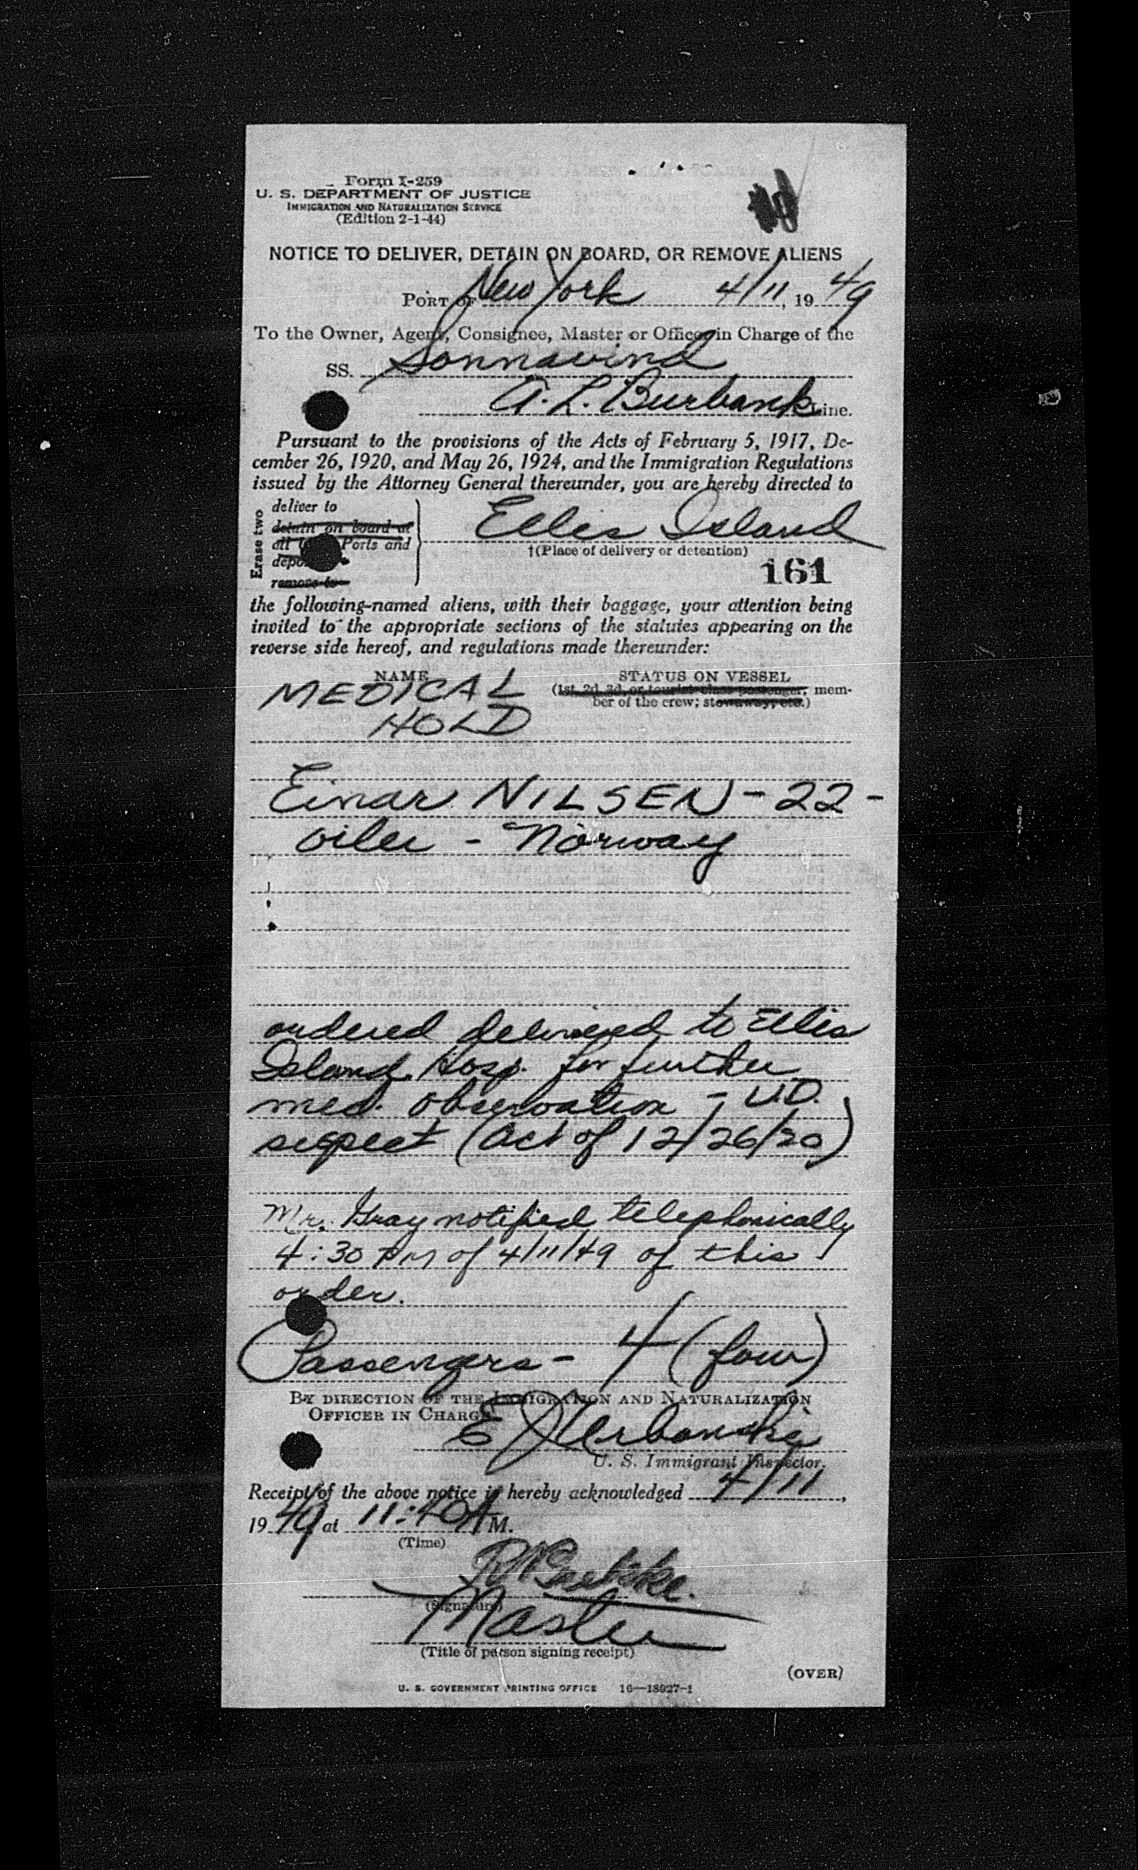 Form I-259
U. S. DEPARTMENT OF JUSTICE
IMMIGRATION AND NATURALIZATION SERVICE
(Edition 2-1-44)
NOTICE TO DELIVER, DETAIN ON BOARD, OR REMOVE ALIENS
PORT OF New York 4/11, 19 49
To the Owner, Agent, Consignee, Master or Officer in Charge of the
SS. Sonnavind
A. L. Burbank Line.
Pursuant to the provisions of the Acts of February 5, 1917, De-
cember 26, 1920, and May 26, 1924, and the Immigration Regulations
issued by the Attorney General thereunder, you are hereby directed to
Erase two
deliver to
detain on board at
all Ports and
remove to
Ellis Island
†(Place of delivery or detention)
161
the following-named aliens, with their baggage, your attention being
invited to the appropriate sections of the statutes appearing on the
reverse side hereof, and regulations made thereunder:
NAME STATUS ON VESSEL
(1st, 2d, 3d, or tourist class passenger; mem-
ber of the crew; stowaway, etc.)
MEDICAL
HOLD
Einar NILSEN - 22 -
oiler - Norway
ordered delivered to Ellis
Island Hosp. for further
med. observation - V.D.
suspect (Act of 12/26/20)
Mr. Gray notified telephonically
4:30 PM of 4/11/49 of this
order.
Passengers - 4 (four)
BY DIRECTION OF THE IMMIGRATION AND NATURALIZATION
OFFICER IN CHARGE
E J Urbanski
U. S. Immigrant Inspector.
Receipt of the above notice is hereby acknowledged 4/11,
19 49 at 11:40 A M.
(Time)
(Signature)
Master
(Title of person signing receipt)
(OVER)
U. S. GOVERNMENT PRINTING OFFICE 16—18927-1